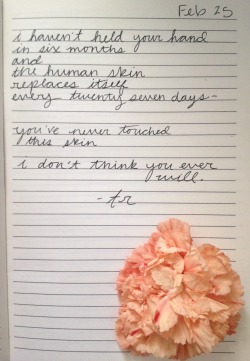 Feb 25
i haven't held your hand
in six months
and
the human skin
replaces itself
every twenty seven days-
you've never touched
this skin
i don't think you ever
will.
-tr